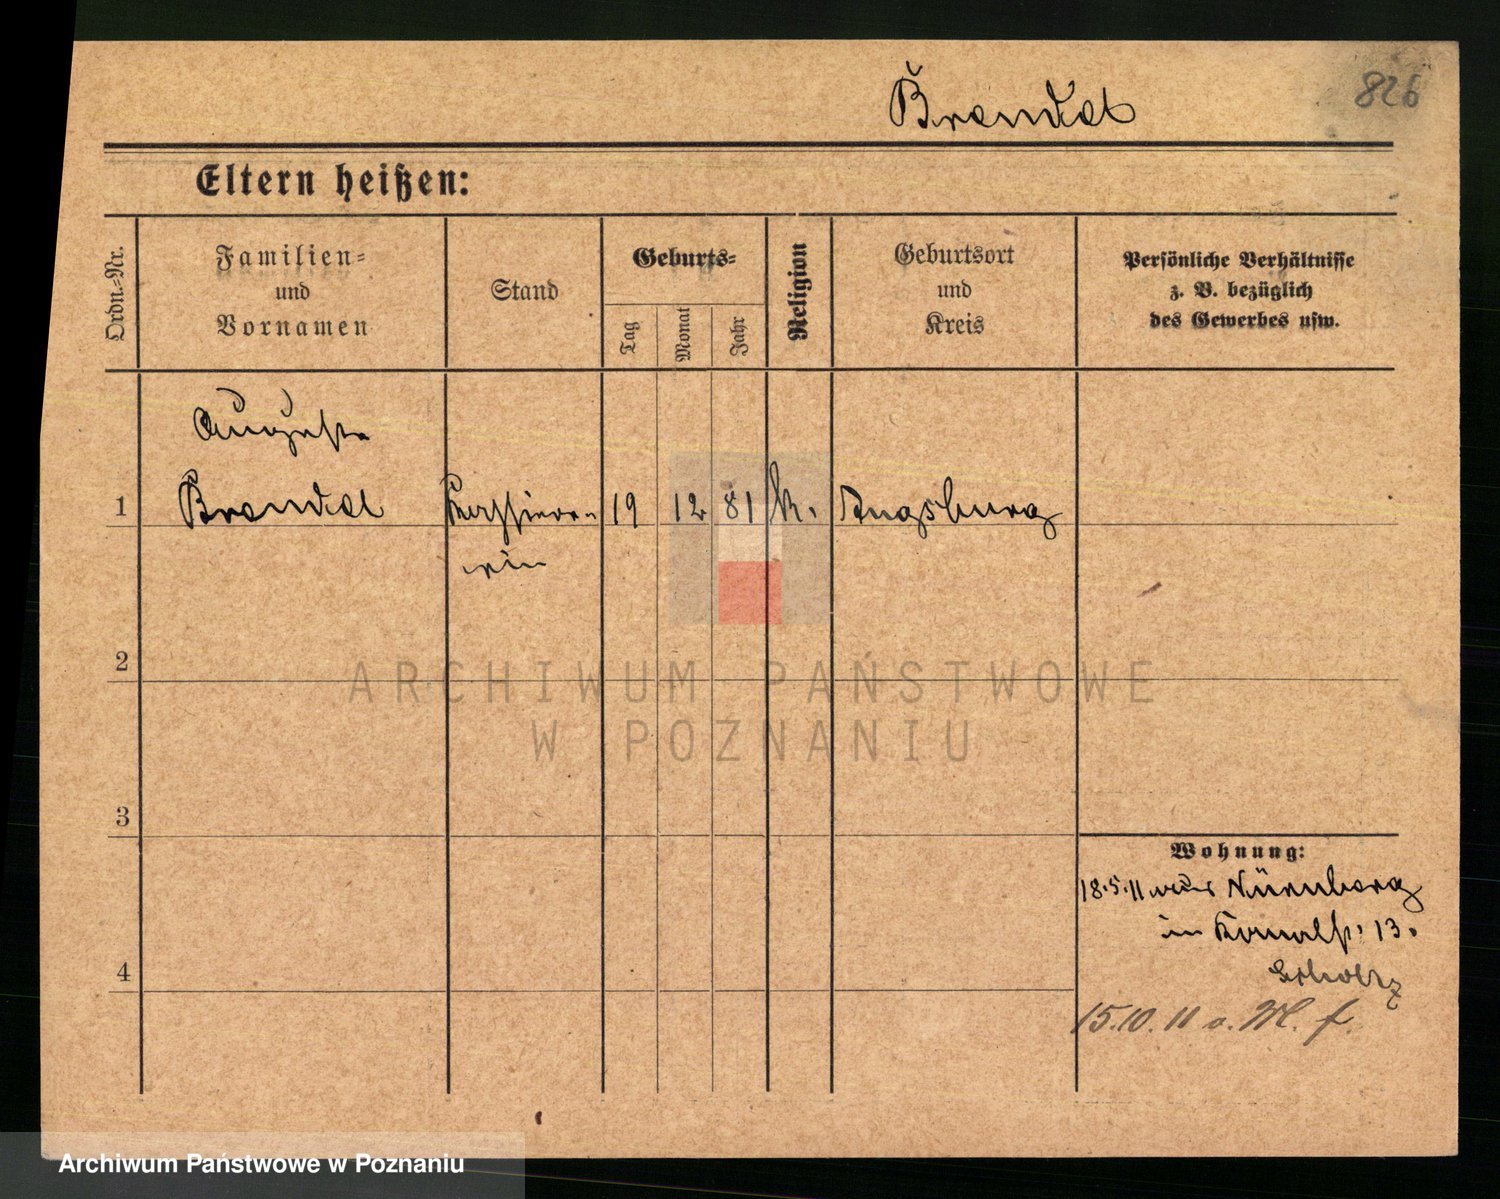 826
Brandel
Eltern heißen:
Ordn.-Nr.
Familien- und Vornamen
Stand
Geburts-
Tag
Monat
Jahr
Religion
Geburtsort und Kreis
Persönliche Verhältnisse
z. B. bezüglich
des Gewerbes usw.
Auguste
1 Brandel 19 12 81 k. Augsburg
2
ARCHIWUM PAŃSTWOWE
W POZNANIU
3
Wohnung:
18.5.11 Nürnberg
13.
4
Scholz
15.10.11
Archiwum Państwowe w Poznaniu